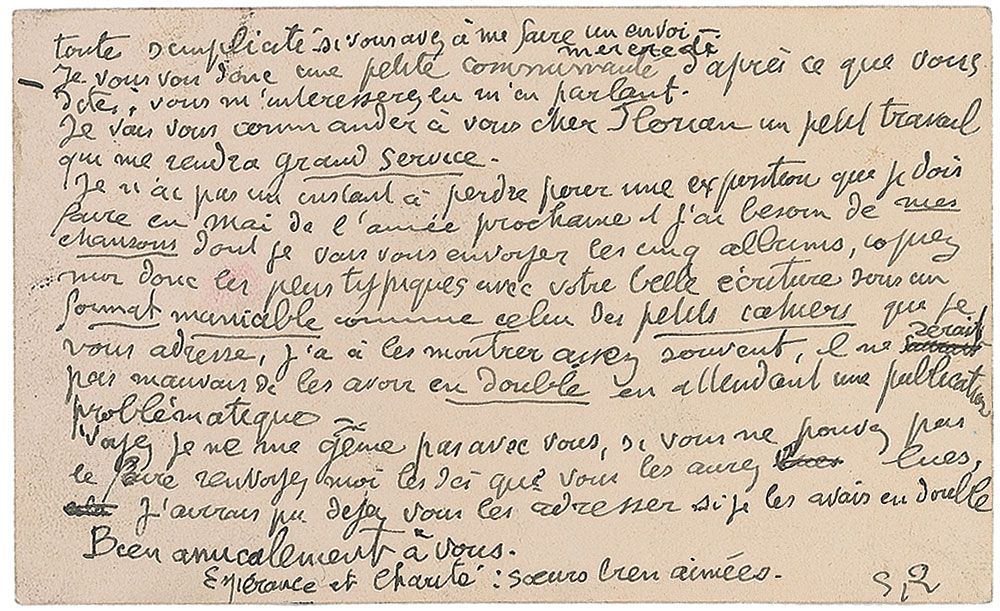 toute simplicité si vous avez à me faire un envoi.
mercredi
Je vous vois donc une petite communauté d'après ce que vous
dites ; vous m'interesserez en m'en parlant.
Je vais vous commander à vous cher Florian un petit travail
qui me rendra grand service.
Je n'ai pas un instant à perdre pour une exposition que je dois
faire en mai de l'année prochaine et j'ai besoin de mes
chansons dont je vais vous envoyer les cinq albums, copiez
moi donc les plus typiques avec votre belle écriture sous un
format maniable comme celui des petits cahiers que je
vous adresse, j'ai à les montrer assez souvent, il ne serait
pas mauvais de les avoir en double en attendant une publication
problématique
Voyez je ne me gêne pas avec vous, si vous ne pouvez pas
le faire renvoyez moi les dès que vous les aurez lues,
J'aurais pu deja vous les adresser si je les avais en double
Bien amicalement à vous.
Espérance et Charité : sœurs bien aimées.